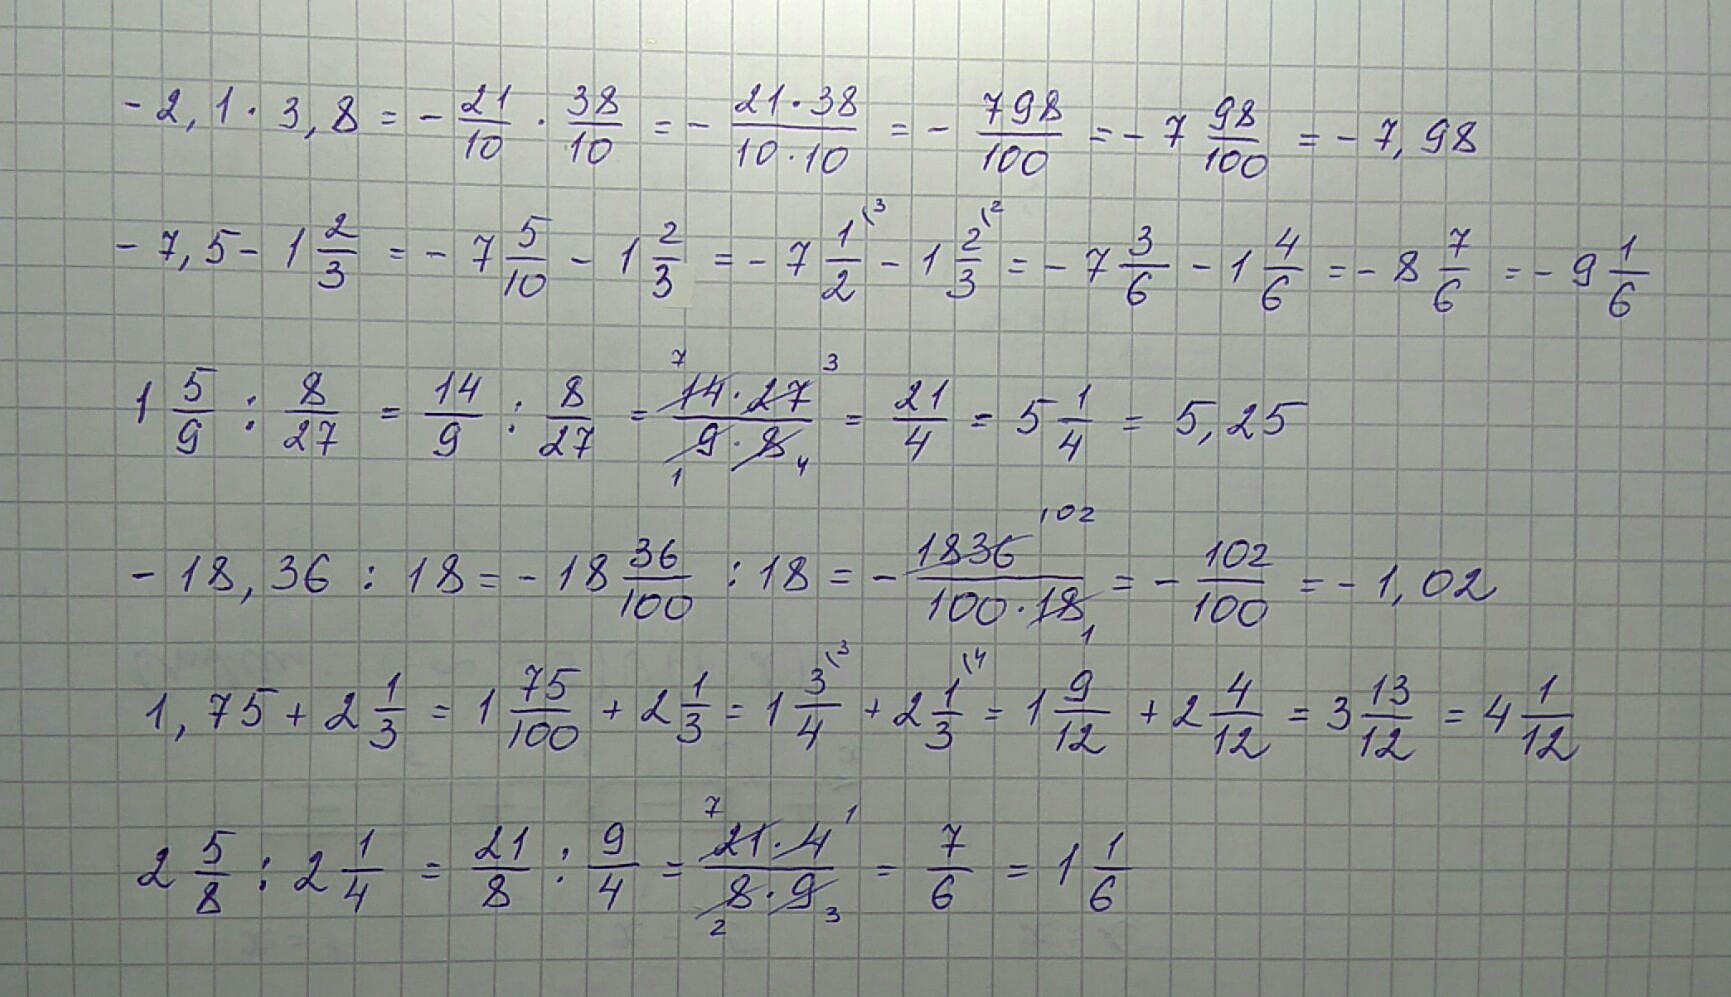 -2,1·3,8 = -21/10 · 38/10 = -21·38/10·10 = -798/100 = -7 98/100 = -7,98
-7,5 - 1 2/3 = -7 5/10 - 1 2/3 = -7 1/2\3 - 1 2/3\2 = -7 3/6 - 1 4/6 = -8 7/6 = -9 1/6
1 5/9 : 8/27 = 14/9 : 8/27 = 7 14·27 3/1 9·8 4 = 21/4 = 5 1/4 = 5,25
-18,36 : 18 = -18 36/100 : 18 = -1836 102/100·18 1 = -102/100 = -1,02
1,75 + 2 1/3 = 1 75/100 + 2 1/3 = 1 3/4\3 + 2 1/3\4 = 1 9/12 + 2 4/12 = 3 13/12 = 4 1/12
2 5/8 : 2 1/4 = 21/8 : 9/4 = 7 21·4 1/2 8·9 3 = 7/6 = 1 1/6